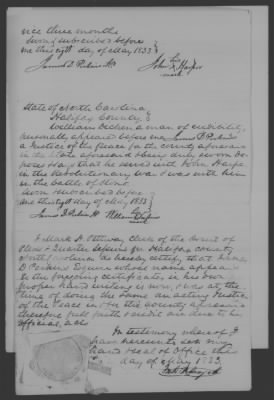 nce three months
Sworn & subscribed before
me this eight day of May 1833
James D Perkins
his
John X Harper
mark
State of North Carolina,
Halifax County
William a man of credibility,
personally appeared before me James D Perkins
a Justice of the peace for the county aforesaid
in the State aforesaid & being duly sworn
that he served with John Harper
in the Revolutionary War & was with him
in the battle of
Sworn & subscribed before
me this eight day of May 1833
James D Perkins
his
William X
mark
I Mark H. Pettway Clerk of the Court of
Pleas & Quarter Sessions for Halifax county
North Carolina do hereby certify, that James
D Perkins Esquire whose name appears
to the foregoing certificates, is his own
proper hand writing & now, & was at the
time of doing the same an acting Justice
of the Peace in & for the county aforesaid &
therefore full faith & credit are due to his
official acts
In testimony whereof I
have hereunto set my
hand & seal of Office the
day of May 1833